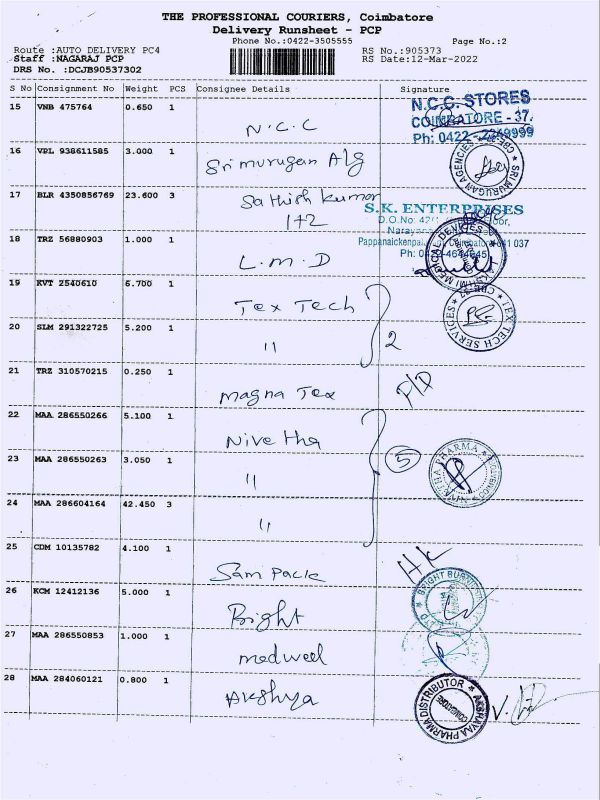 THE PROFESSIONAL COURIERS, Coimbatore
Delivery Runsheet - PCP
Phone No.:0422-3505555
Page No.:2
Route :AUTO DELIVERY PC4
RS No.:905373
Staff :NAGARAJ PCP
RS Date:12-Mar-2022
DRS No. :DCJB90537302
S No Consignment No Weight PCS Consignee Details Signature
15 VNB 475764 0.650 1
N.C.C
N.C.C. STORES
COIMBATORE - 37.
Ph: 0422 - 2269999
16 VPL 938611585 3.000 1
Sri murugan Alg
SRI MURUGAN AGENCIES
17 BLR 4350856769 23.600 3
Sathish kumar
1+2
S.K. ENTERPRISES
Coimbatore-641 037
18 TRZ 56880903 1.000 1
L.M.D
MEDICAL DEVICES
19 KVT 2540610 6.700 1
Tex Tech
TEX TECH SERVICES
20 SLM 291322725 5.200 1
" 2
21 TRZ 310570215 0.250 1
magna Tex
22 MAA 286550266 5.100 1
Nivetha
23 MAA 286550263 3.050 1
" 5
PHARMA
24 MAA 286604164 42.450 3
"
25 CDM 10135782 4.100 1
Sam pack
26 KCM 12412136 5.000 1
Bright
BRIGHT
27 MAA 286550853 1.000 1
medwell
28 MAA 284060121 0.800 1
Akshya
AKSHAYAA PHARMA DISTRIBUTOR
COIMBATORE